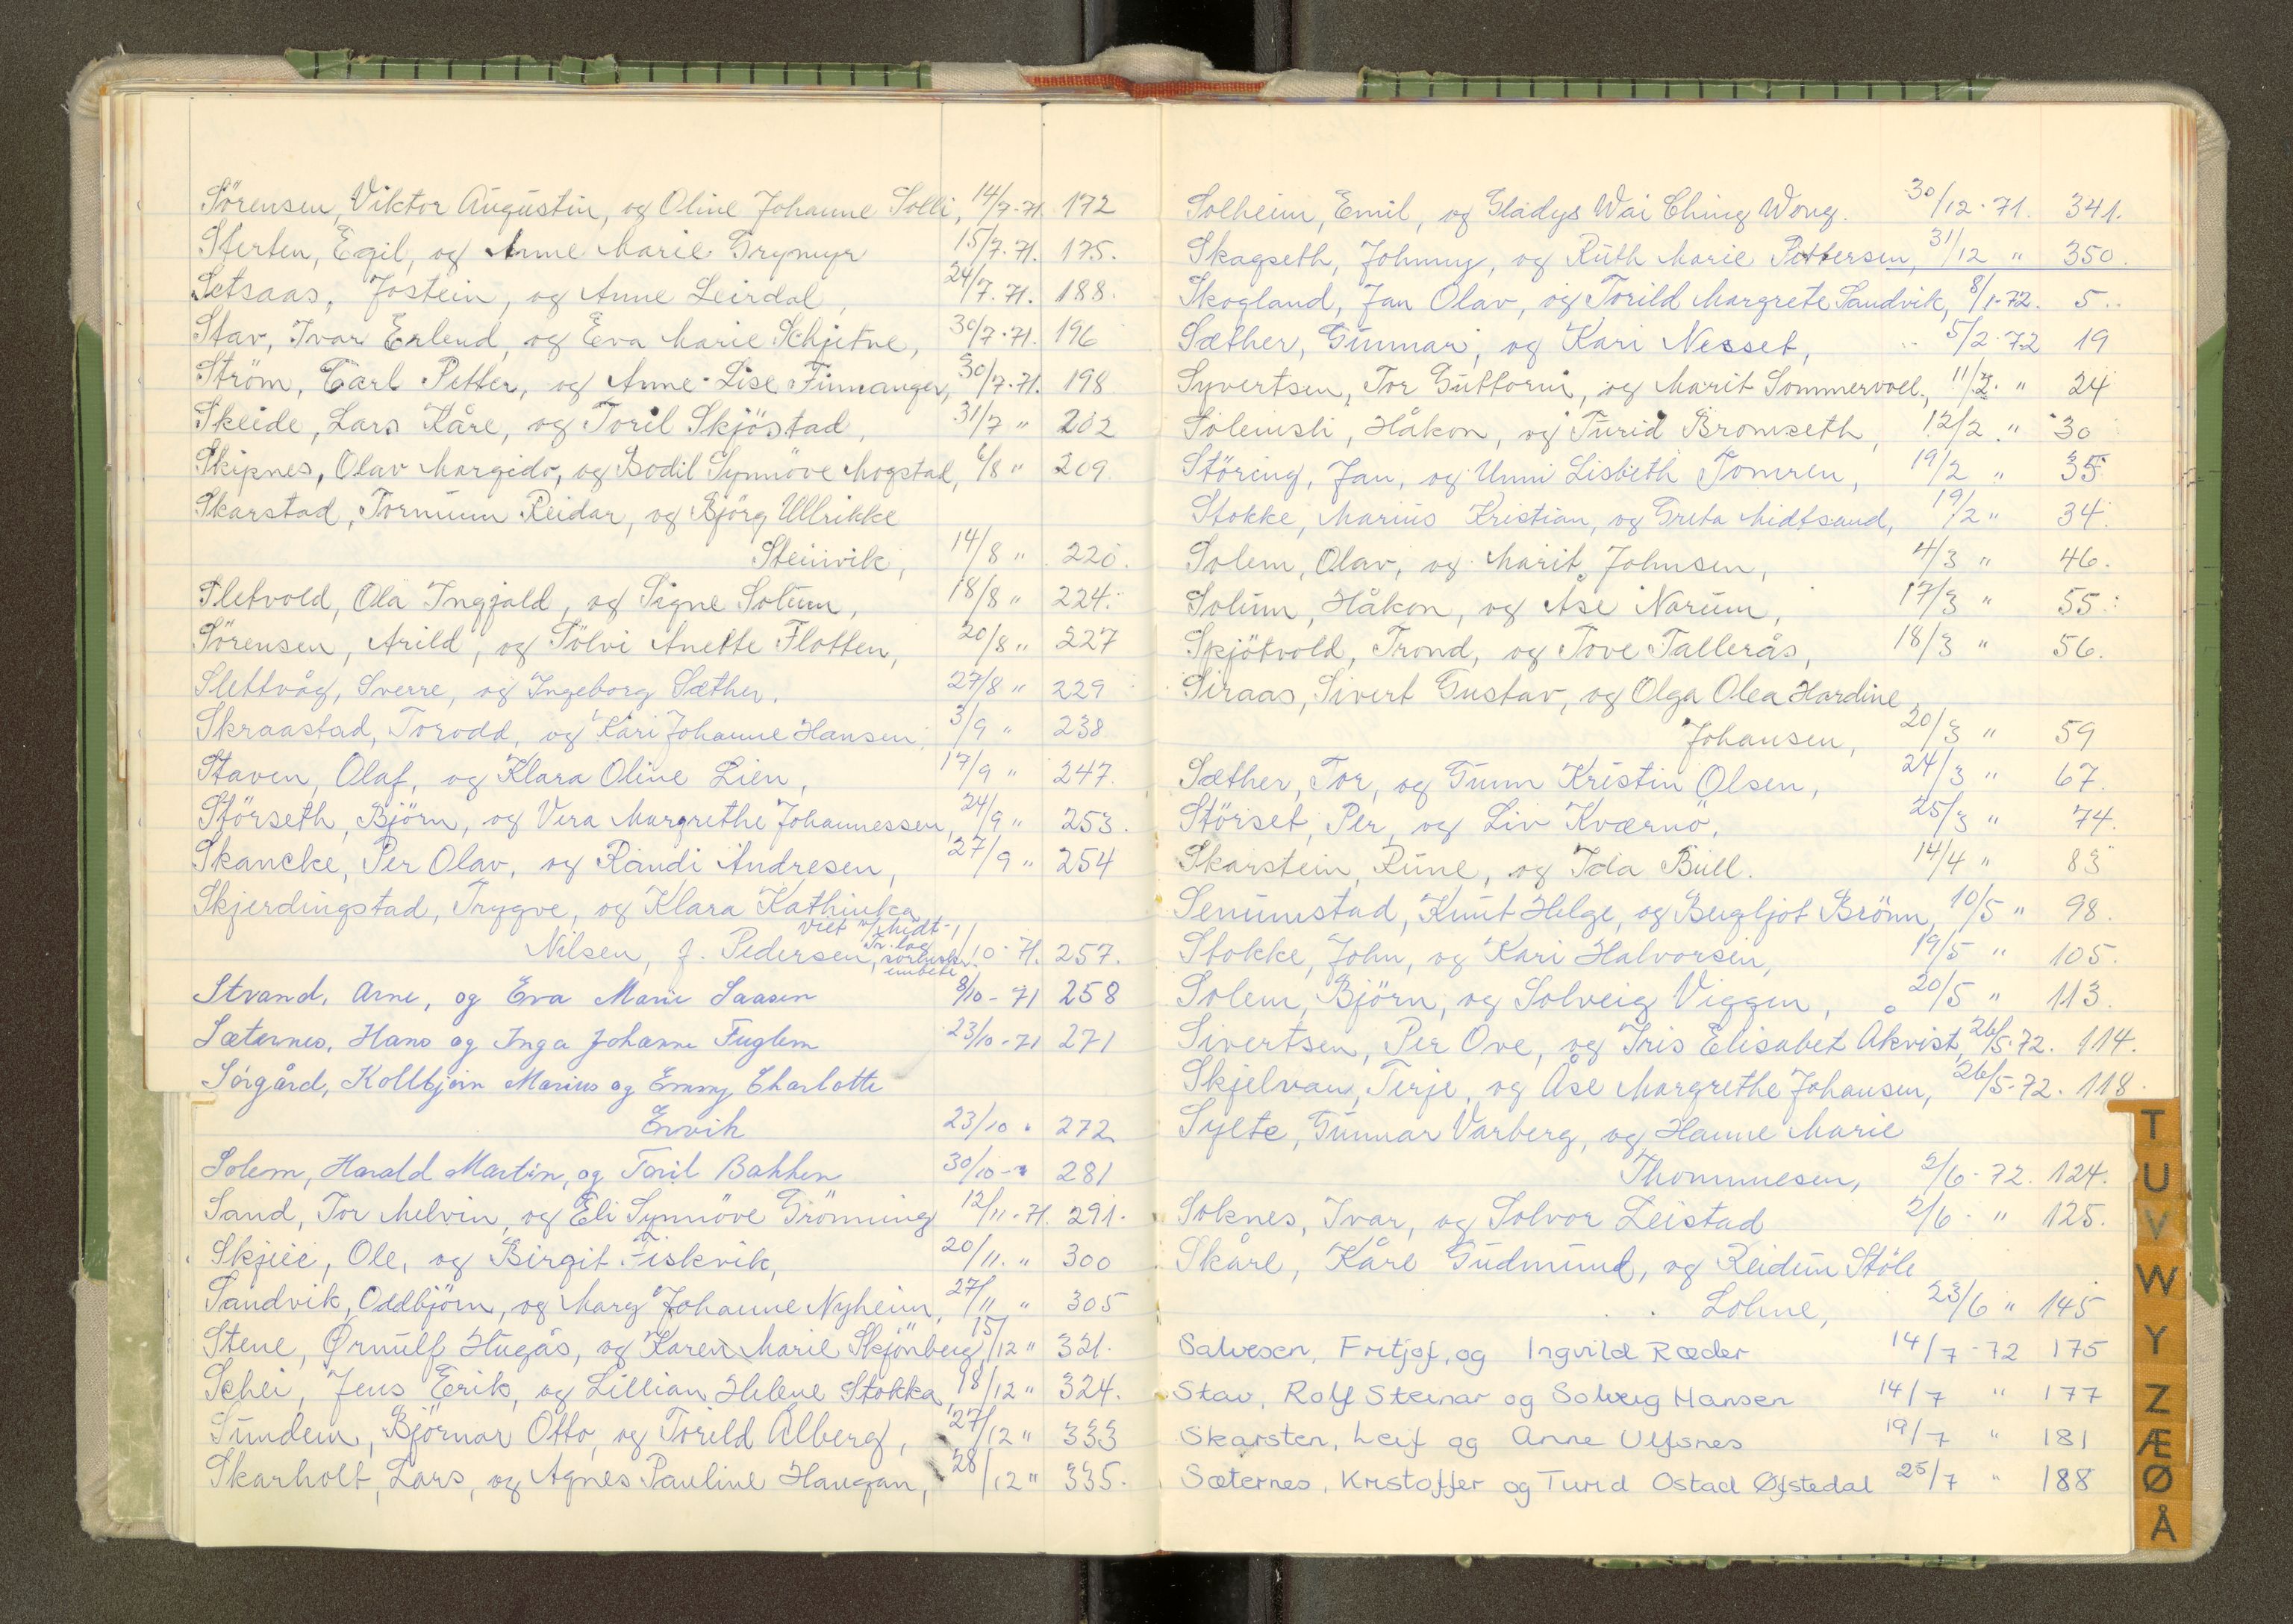 Sörensen, Viktor Augustin, og Oline Johanne Solli, 14/7-71 172
Sterten, Egil, og Anne Marie Grymyr 15/7.71. 175.
Setsaas, Jostein, og Anne Leirdal, 24/7.71. 188.
Stav, Ivar Erlend, og Eva Marie Schjetne, 30/7.71. 196
Ström, Carl Petter, og Anne-Lise Finnanger, 30/7.71. 198
Skeide, Lars Kåre, og Toril Skjöstad, 31/7 " 202
Skipnes, Olav Margido, og Bodil Synnöve Mogstad, 6/8 " 209
Skarstad, Tormunn Reidar, og Bjørg Ullrikke
Steinvik, 14/8 " 220.
Sletvold, Ola Ingjald, og Signe Solum, 18/8 " 224.
Sörensen, Arild, og Sölvi Anette Flotten, 20/8 " 227
Slettvåg, Sverre, og Ingeborg Sæther. 27/8 " 229
Skraastad, Torodd, og Kari Johanne Hansen, 3/9 " 238
Staven, Olaf, og Klara Oline Lien, 17/9 " 247.
Störseth, Björn, og Vera Margrethe Johannessen, 24/9 " 253.
Skancke, Per Olav, og Randi Andresen, 27/9 " 254
Skjerdingstad, Trygve, og Klara Kathinka
viet v/Midt-
Nilsen, f. Pedersen, Tr.lag 1/10-71. 257.
embete
Strand, Arne, og Eva Marie Saasen 8/10-71 258
Sæternes, Hans og Inga Johanne Fuglem 23/10-71 271
Sörgård, Kollbjørn Marius og Emmy Charlotte
Ervik 23/10 " 272
Solem, Harald Martin, og Toril Bakken 30/10-" 281
Sand, Tor Melvin, og Eli Synnöve Grönning 12/11-71. 291.
Skjeie, Ole, og Birgit Fiskvik, 20/11. " 300
Sandvik, Oddbjörn, og Mary Johanne Nyheim, 27/11 " 305
Stene, Ørnulf Hugås, og Karen Marie Skjönberg, 15/12 " 321.
Schei, Jens Eerik, og Lillian Helene Stokka, 18/12 " 324.
Sundem, Björnar Otto, og Torild Alberg, 27/12 " 333
Skarholt, Lars, og Agnes Pauline Haugan, 28/12 " 335.
Solheim, Emil, og Gladys Wai Ching Wong. 30/12-71. 341.
Skagseth, Johnny, og Ruth Marie Pettersen, 31/12 " 350.
Skogland, Jan Olav, og Torild Margrete Sandvik, 8/1-72. 5.
Sæther, Gunnar, og Kari Nesset, 5/2-72 19
Syvertsen, Tor Guttorm, og Marit Sommervoll, 11/2. " 24
Solemsli, Håkon, og Turid Bromseth, 12/2. " 30
Störing, Jan, og Unni Lisbeth Tomren, 19/2 " 35
Stokke, Marius Kristian, og Greta Midtsand, 19/2 " 34.
Solem, Olav, og Marit Johnsen, 4/3 " 46.
Solum, Håkon, og Åse Narum, 17/3 " 55.
Skjötvold, Trond, og Tove Tallerås, 18/3 " 56.
Siraas, Sivert Gustav, og Olga Olea Hardine
Johansen, 20/3 " 59
Sæther, Tor, og Gunn Kristin Olsen, 24/3 " 67.
Störset, Per, og Liv Kværnö, 25/3 " 74.
Skarstein, Rune, og Ida Bull. 14/4 " 83
Senumstad, Knut Helge, og Bergljot Brönn, 10/5 " 98.
Stokke, John, og Kari Halvorsen, 19/5 " 105.
Solem, Björn, og Solveig Viggen, 20/5 " 113.
Sivertsen, Per Ove, og Iris Elisabet Akvist, 26/5-72. 114.
Skjelvan, Terje, og Åse Margrethe Johansen, 26/5-72. 118.
Sylte, Gunnar Varberg, og Hanne Marie
Thommesen, 2/6-72. 124.
Soknes, Ivar, og Solvor Leistad 2/6- " 125.
Skåre, Kåre Gudmund, og Reidun Stöle
Lohne, 23/6 " 145
Salvesen, Fritjof, og Ingvild Ræder 14/7-72 175
Stav, Rolf Steinar og Solveig Hansen 14/7 " 177
Skarsten, Leif og Anne Ulfsnes 19/7 " 181
Sæternes, Kristoffer og Turid Ostad Øfstedal 25/7 " 188
T
U
V
W
Y
Z
Æ
Ø
Å